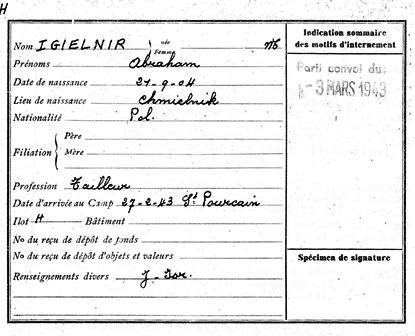 H
Nom IGIELNIR née Femme
Prénoms Abraham
Date de naissance 21-9-04
Lieu de naissance Chmielnik
Nationalité Pol.
Filiation
Père
Mère
Profession Tailleur
Date d'arrivée au Camp 27-2-43 St Pourcain
Ilot H Bâtiment
No du reçu de dépôt de fonds
No du reçu de dépôt d'objets et valeurs
Renseignements divers
Indication sommaire
des motifs d'internement
Parti convoi du:
3 MARS 1943
Spécimen de signature